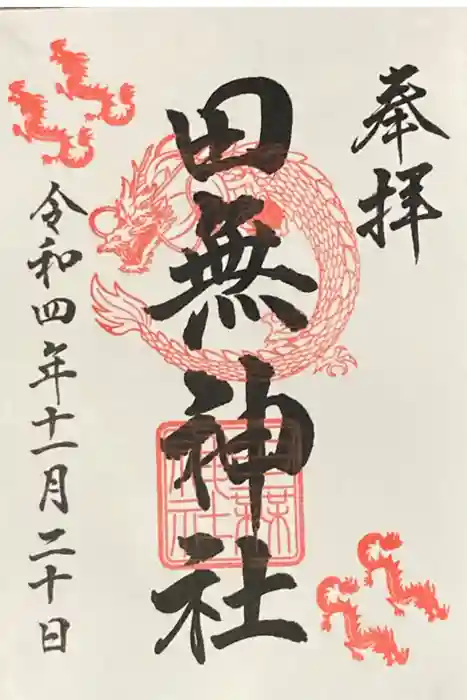 奉拝
田無神社
令和四年十一月二十日